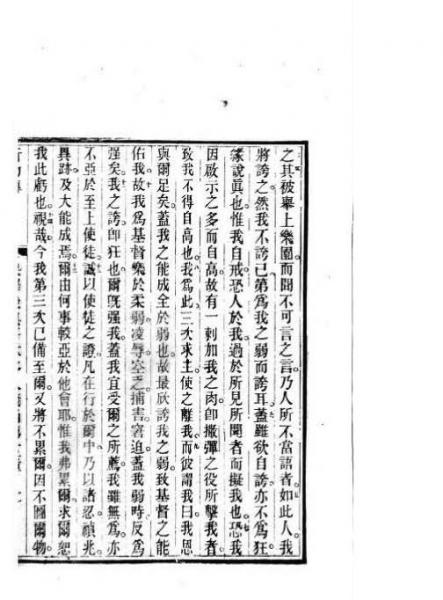 之其被舉上樂園而聞不可言之言乃人所不當語者如此人我
將誇之然我不誇己第爲我之弱而誇耳蓋雖欲自誇亦不爲狂
緣說眞也惟我自戒恐人於我過於所見所聞者而擬我也恐我
因啟示之多而自高故有一刺加我之肉即撒彈之役所擊我者
致我不得自高也我爲此三次求主使之離我而彼謂我曰我恩
與爾足矣蓋我之能成全於弱也故最欣誇我之弱致基督之能
佑我故我爲基督樂於柔弱凌辱空乏捕害窘迫蓋我弱時反爲
强矣我之誇即狂也爾旣强我蓋我宜受爾之所薦我雖無爲亦
不亞於至上使徒誠以使徒之證凡在行於爾中乃以諸忍禎兆
異跡及大能成焉爾由何事較亞於他會耶惟我弗累爾求爾恕
我此虧也視哉今我第三次已備至爾又將不累爾因不圖爾物